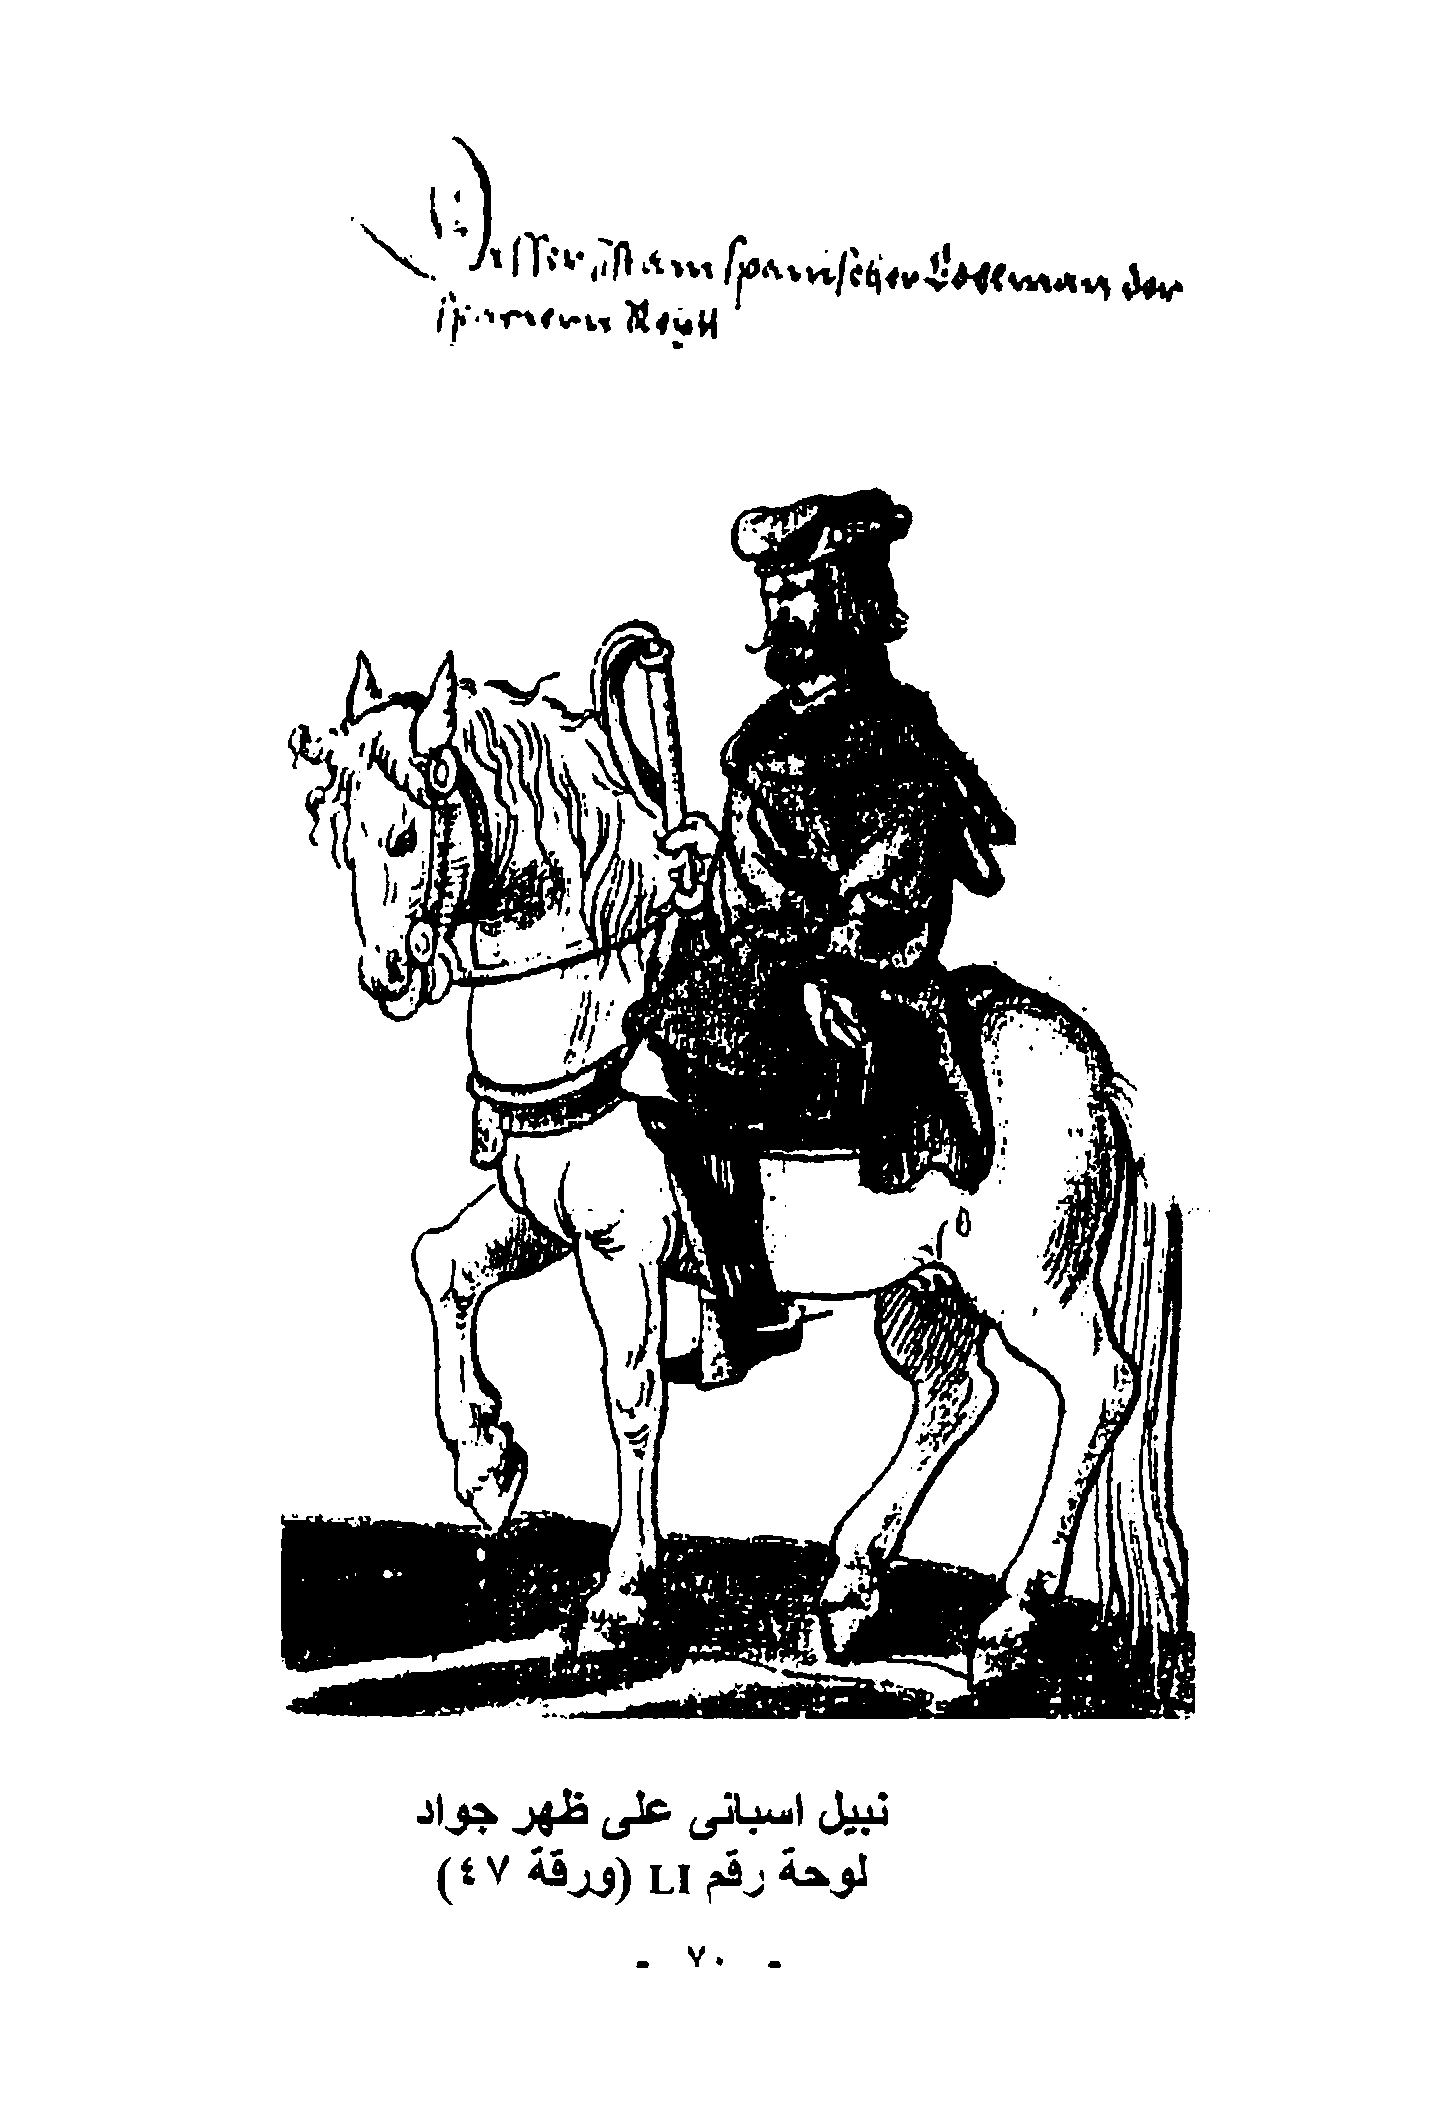 Disser ist ain spanischer Edelman der
spacieren Reytt
نبيل اسبانى على ظهر جواد
لوحة رقم LI (ورقة ٤٧)
- ٧٠ -